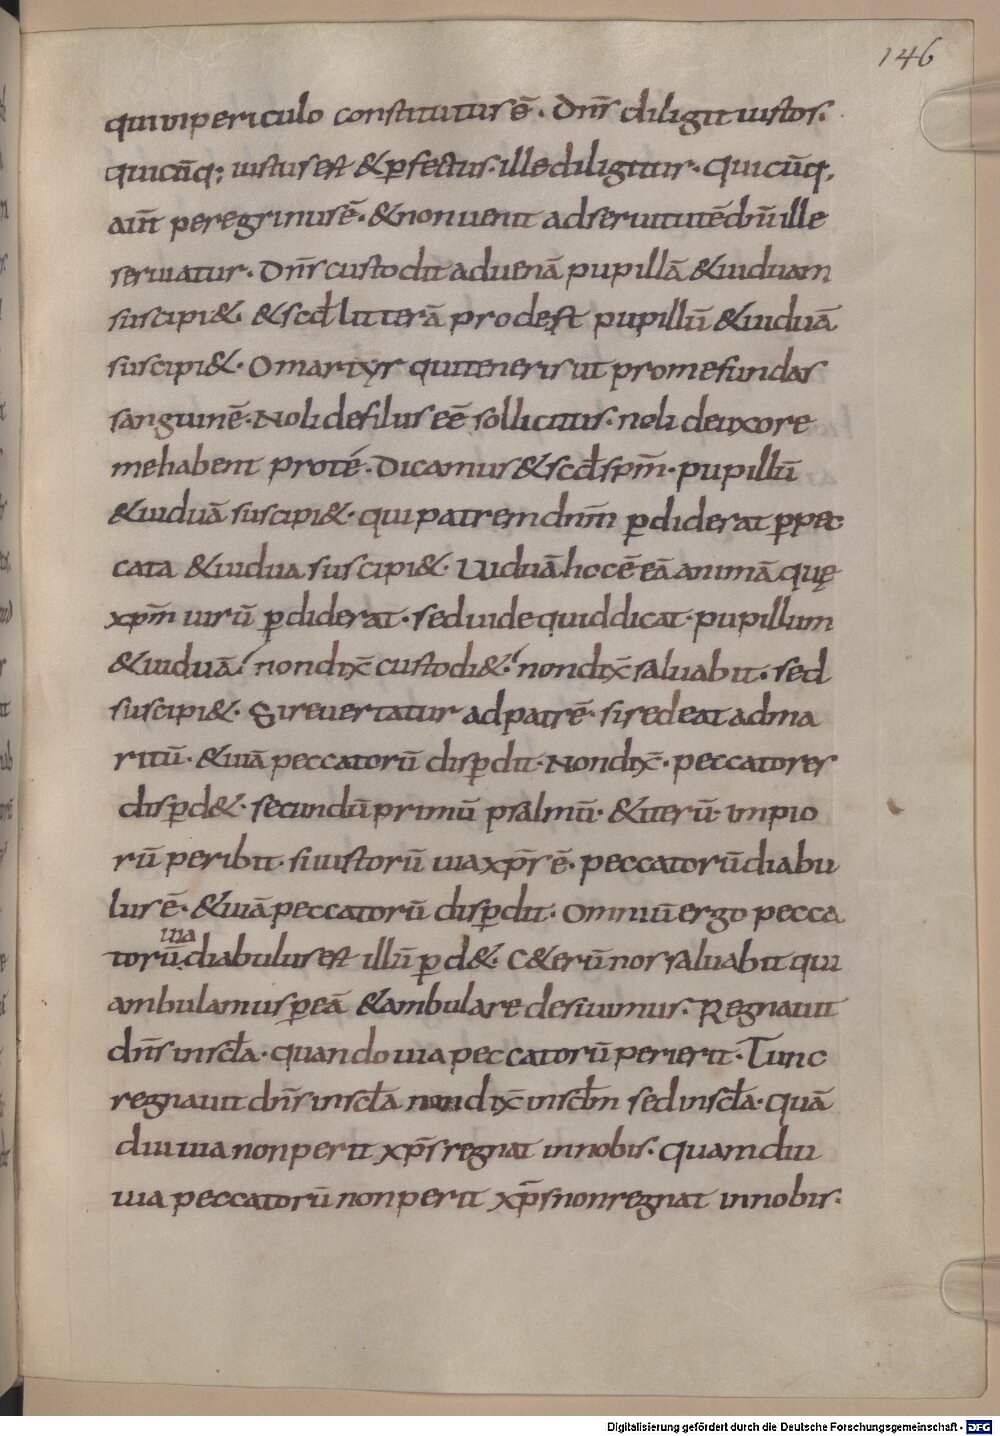 146
qui in periculo constitutus ē. Dn̄s diligit iustos.
quicūq; iustus est & ꝑfectus. ille diligitur. Quicūq,
aūt peregrinus ē. & non uenit ad seruitutē dn̄i ille
seruatur. Dn̄s custodit aduenā pupillā & uiduam
suscipi&. & scd̄ litterā prodest pupillū & uiduā
suscipi&. O martyr qui teneris ut pro me fundas
sanguinē. Noli de filiis eē sollicitus. noli de uxore
me habent pro te. Dicamus & scd̄ sp̄m. pupillū
& uiduā suscipi&. qui patrem dn̄m ꝑdiderat ꝑ pec
cata & uidua suscipi&. Uiduā hoc ē eā animā quę
xp̄m uirū ꝑdiderat. sed uide quid dicat. pupillum
& uiduā. non dix̄ custodi&. non dix̄ saluabit. sed
suscipi&. Si reuertatur ad patrē. si redeat ad ma
ritū. & uiā peccatorū disꝑdit. Non dix̄. peccatores
disꝑd&. secundū primū psalmū. & iterū. impio
rū peribit. si iustorū uia xp̄s ē. peccatorū diabu
lus ē. & uiā peccatorū disꝑdit. Omniū ergo pecca
uia
torū diabulus est illū ꝑd&. C&erū nos saluabit qui
ambulamus ꝑ eā & ambulare desiuimus. Regnauit
dn̄s in scl̄a. quando uia peccatorū perierit. Tunc
regnauit dn̄s in scl̄a non dix̄ in scl̄m sed in scl̄a. Quā
diu uia non perit xp̄s regnat in nobis. Quamdiu
uia peccatorū non perit xp̄s non regnat in nobis.
Digitalisierung gefördert durch die Deutsche Forschungsgemeinschaft - DFG